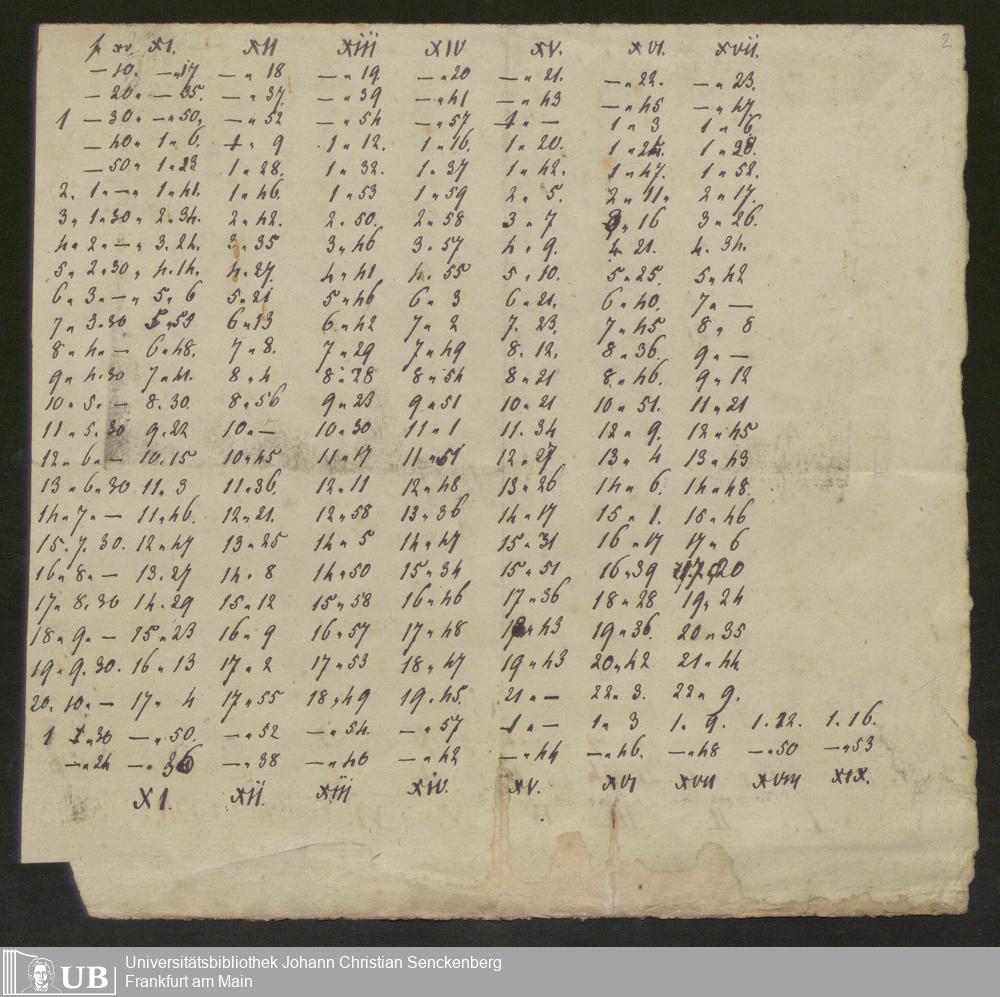 xv. XI. XII XIII XIV XV. XVI. XVII. 2
— 10. — „ 17 — „ 18 — „ 19 — „ 20 — „ 21. — „ 22. — „ 23.
— 20 „ — „ 35. — „ 37. — „ 39 — „ 41 — „ 43 — „ 45 — „ 47
1 — 30 „ — „ 50, — „ 52 — „ 54 — „ 57 1 „ — 1 „ 3 1 „ 6
— 40 „ 1 „ 6. 1 „ 9 1 „ 12. 1 „ 16. 1 „ 20. 1 „ 24. 1 „ 28.
— 50 „ 1 „ 23 1 „ 28. 1 „ 32. 1 „ 37 1 „ 42. 1 „ 47. 1 „ 52.
2. 1 „ — „ 1 „ 41. 1 „ 46. 1 „ 53 1 „ 59 2 „ 5. 2 „ 11 „ 2 „ 17.
3 „ 1 „ 30 „ 2 „ 34. 2 „ 42. 2. 50. 2 „ 58 3 „ 7 3 „ 16 3 „ 26.
4 „ 2 „ — „ 3. 24. 3 „ 35 3 „ 46 3. 57 4 „ 9. 4. 21. 4. 34.
5 „ 2 „ 30 „ 4. 14. 4. 27. 4 „ 41 4. 55 5 „ 10. 5 „ 25. 5 „ 42
6 „ 3 „ — „ 5 „ 6 5 „ 21 5 „ 46 6 „ 3 6 „ 21. 6 „ 40. 7 „ —
7 „ 3. 30 5 „ 59 6 „ 13 6 „ 42 7 „ 2 7. 23. 7 „ 45 8 „ 8
8 „ 4 „ — 6 „ 48. 7 „ 8. 7 „ 29 7 „ 49 8. 12. 8 „ 36. 9 „ —
9 „ 4. 30 7 „ 41. 8 „ 4 8 „ 28 8 „ 54 8 „ 21 8 „ 46. 9 „ 12
10 „ 5 „ — 8. 30. 8 „ 56 9 „ 23 9 „ 51 10 „ 21 10 „ 51. 11 „ 21
11 „ 5. 30 9. 22 10 „ — 10 „ 30 11 „ 1 11. 34 12 „ 9. 12 „ 45
12 „ 6 „ — 10. 15 10 „ 45 11 „ 17 11 „ 51 12 „ 27 13 „ 4 13 „ 43
13 „ 6 „ 30 11 „ 3 11 „ 36. 12 „ 11 12 „ 48 13 „ 26 14 „ 6. 14 „ 48.
14 „ 7 „ — 11 „ 46. 12 „ 21. 12 „ 58 13 „ 36 14 „ 17 15 „ 1. 15 „ 46
15. 7. 30. 12 „ 47 13 „ 25 14 „ 5 14 „ 47 15 „ 31 16 „ 17 17 „ 6
16 „ 8 „ — 13. 27 14. 8 14 „ 50 15 „ 34 15 „ 51 16 „ 39 17 „ 20
17 „ 8. 30 14. 29 15 „ 12 15 „ 58 16 „ 46 17 „ 36 18 „ 28 19 „ 24
18 „ 9 „ — 15 „ 23 16 „ 9 16 „ 57 17 „ 48 18 „ 43 19 „ 36. 20 „ 35
19 „ 9. 30. 16 „ 13 17 „ 2 17 „ 53 18 „ 47 19 „ 43 20 „ 42 21 „ 44
20. 10 „ — 17 „ 4 17 „ 55 18 „ 49 19. 45. 21 „ — 22 „ 3. 22 „ 9.
1 „ 30 — „ 50. — „ 52 — „ 54. — „ 57 1 „ — 1 „ 3 1. 9. 1. 12. 1. 16.
— „ 24 — „ 36 — „ 38 — „ 40 — „ 42 — „ 44 — „ 46. — „ 48 — „ 50 — „ 53
XI. XII. XIII XIV. XV. XVI XVII XVIII XIX.
UB Universitätsbibliothek Johann Christian Senckenberg
Frankfurt am Main